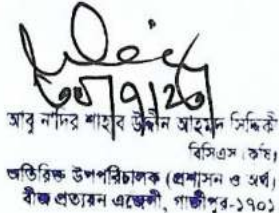 আবু নাদির শাহাব উদ্দীন আহমদ সিদ্দিকী
বিসিএস (কৃষি)
অতিরিক্ত উপপরিচালক (প্রশাসন ও অর্থ)
বীজ প্রত্যয়ন এজেন্সী, গাজীপুর-১৭০১